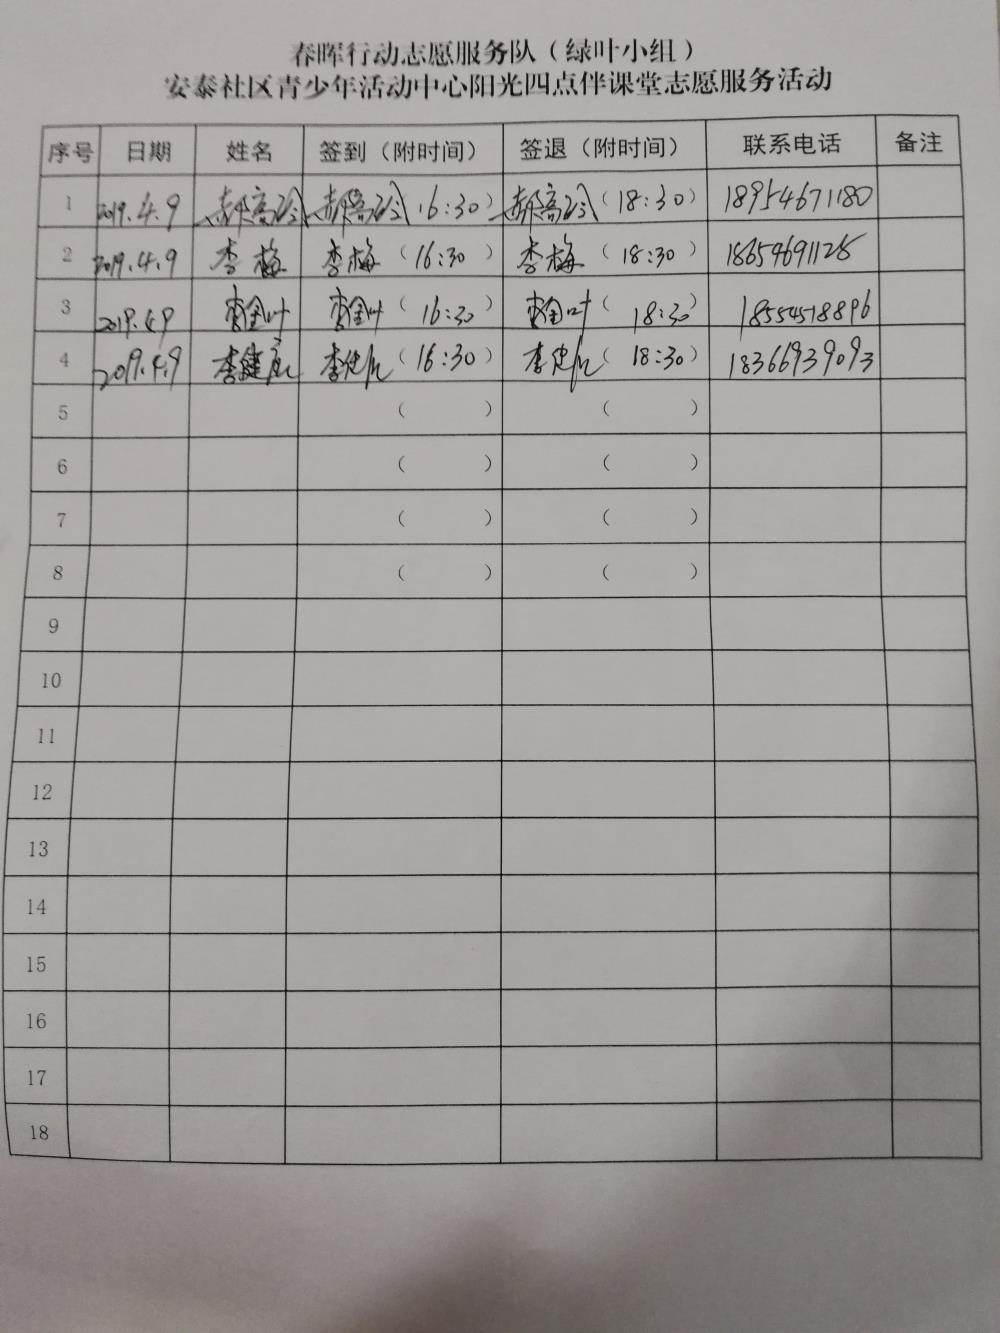 春晖行动志愿服务队（绿叶小组）
安泰社区青少年活动中心阳光四点伴课堂志愿服务活动
序号 日期 姓名 签到（附时间） 签退（附时间） 联系电话 备注
1 2019.4.9 郝高玲 郝高玲（16:30） 郝高玲（18:30） 18954671180
2 2019.4.9 李梅 李梅（16:30） 李梅（18:30） 18654691128
3 2019.4.9 李金叶 李金叶（16:30） 李金叶（18:30） 18554518896
4 2019.4.9 李建 李（16:30） 李（18:30） 18366939093
5 （ ） （ ）
6 （ ） （ ）
7 （ ） （ ）
8 （ ） （ ）
9
10
11
12
13
14
15
16
17
18